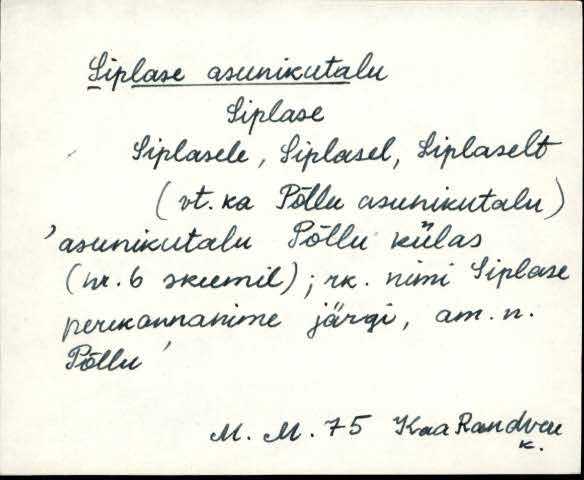 Siplase asunikutalu
Siplase
Siplasele, Siplasel, Siplaselt
(vt. ka Põllu asunikutalu)
'asunikutalu Põllu külas
(nr. 6 skeemil); rk. nimi Siplase
perekonnanime järgi, am. n.
Põllu'
M. M. 75 Kaa Randveek.